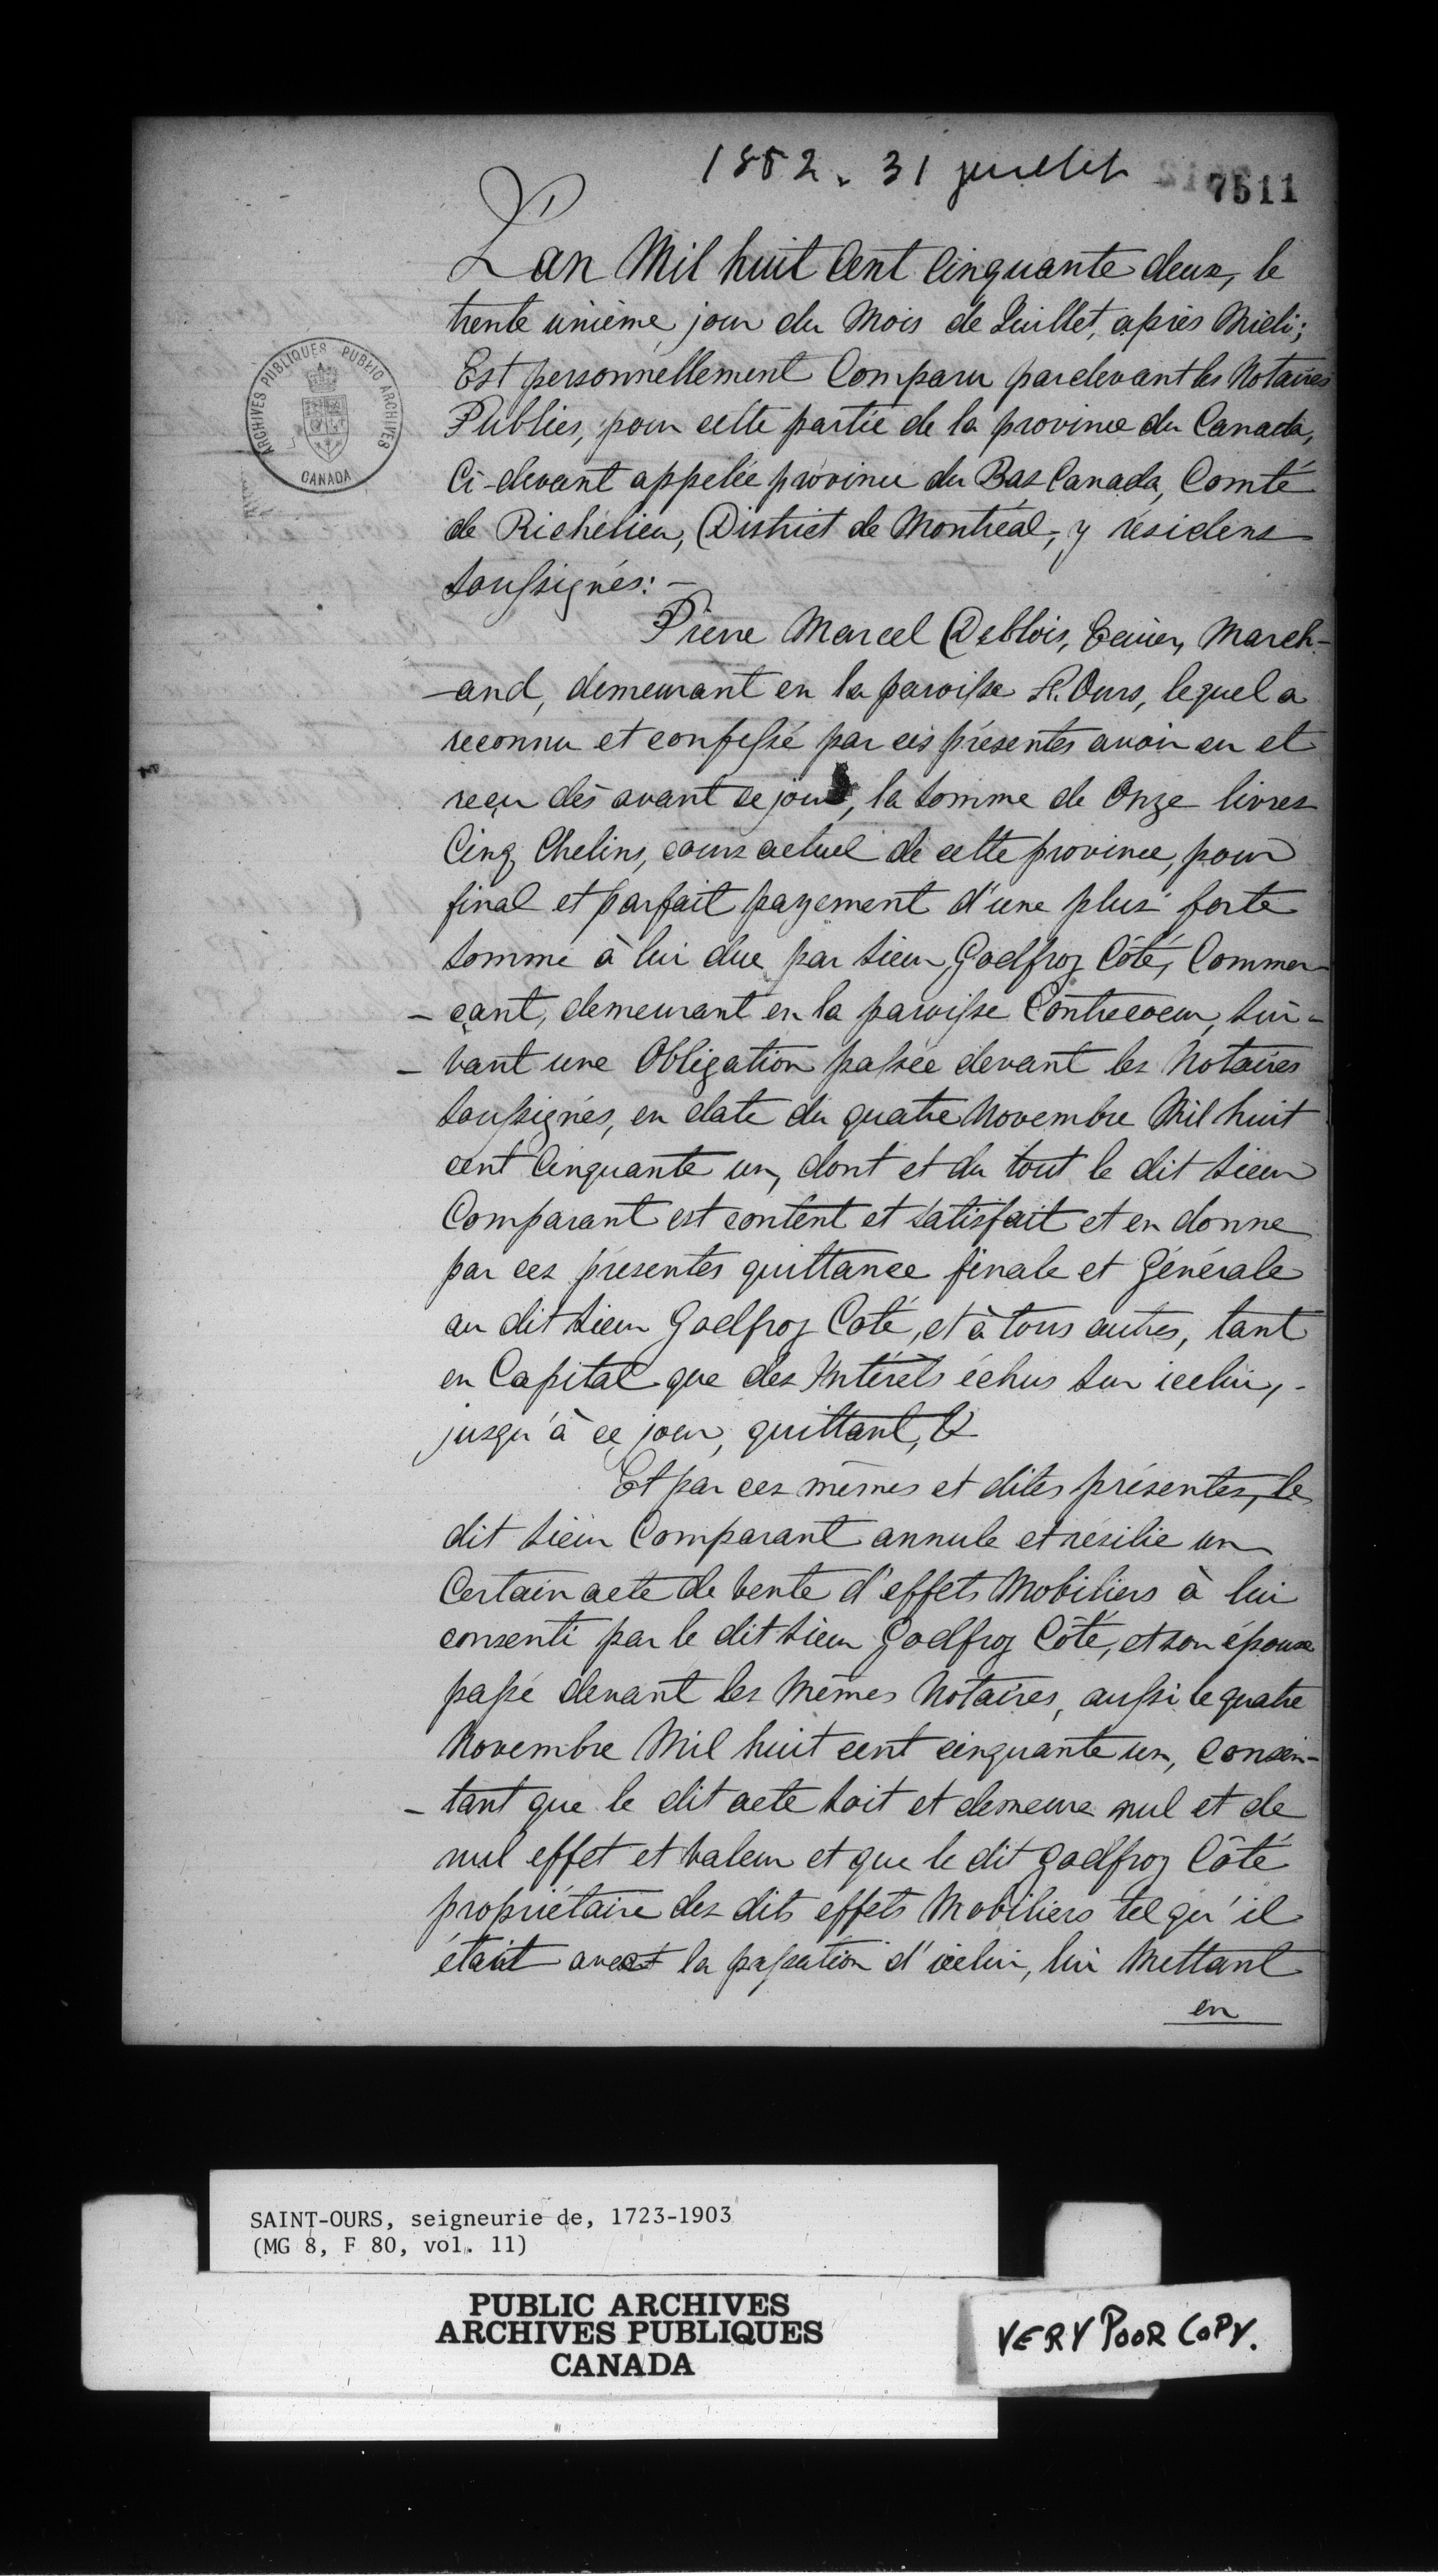 1852. 31 juillet
7511
L'an Mil huit Cent Cinquante deux, le
trente unième jour du Mois de Juillet, après Midi;
Est personnellement Comparu pardevant les Notaires
Publics, pour cette partie de la province du Canada,
Ci-devant appelée province du Bas Canada, Comté
de Richelieu, District de Montréal, y résidens
soussignés: -
Pierre Marcel Deblois, Ecuier, March-
-and, demeurant en la paroisse St. Ours, lequel a
reconnu et confessé par ces présentes avoir eu et
reçu dès avant ce jour, la somme de Onze livres
Cinq Chelins, cours actuel de cette province, pour
final et parfait payement d'une plus forte
somme à lui due par sieur Godfroy Côté, Commer-
-çant, demeurant en la paroisse Contrecoeur, sui-
-vant une Obligation passée devant les Notaires
soussignés, en date du quatre Novembre Mil huit
cent Cinquante un, dont et du tout le dit sieur
Comparant est content et satisfait et en donne
par ces présentes quittance finale et Générale
au dit sieur Godfroy Coté, et à tous autres, tant
en Capital que des Intérêts échus sur icelui, -
jusqu'à ce jour, quittant, &
Et par ces mêmes et dites présentes, le
dit sieur Comparant annule et résilie un
Certain acte de vente d'effets Mobiliers à lui
consenti par le dit sieur Godfroy Côté, et son épouse
passé devant les Mêmes Notaires, aussi le quatre
Novembre Mil huit cent cinquante un, Consen-
-tant que le dit acte soit et demeure nul et de
nul effet et valeur et que le dit Godfroy Côté
propriétaire des dits effets Mobiliers tel qu'il
était avant la passation d'icelui, lui Mettant
en
ARCHIVES PUBLIQUES PUBLIC ARCHIVES
CANADA
SAINT-OURS, seigneurie de, 1723-1903
(MG 8, F 80, vol. 11)
PUBLIC ARCHIVES
ARCHIVES PUBLIQUES
CANADA
VERY POOR COPY.